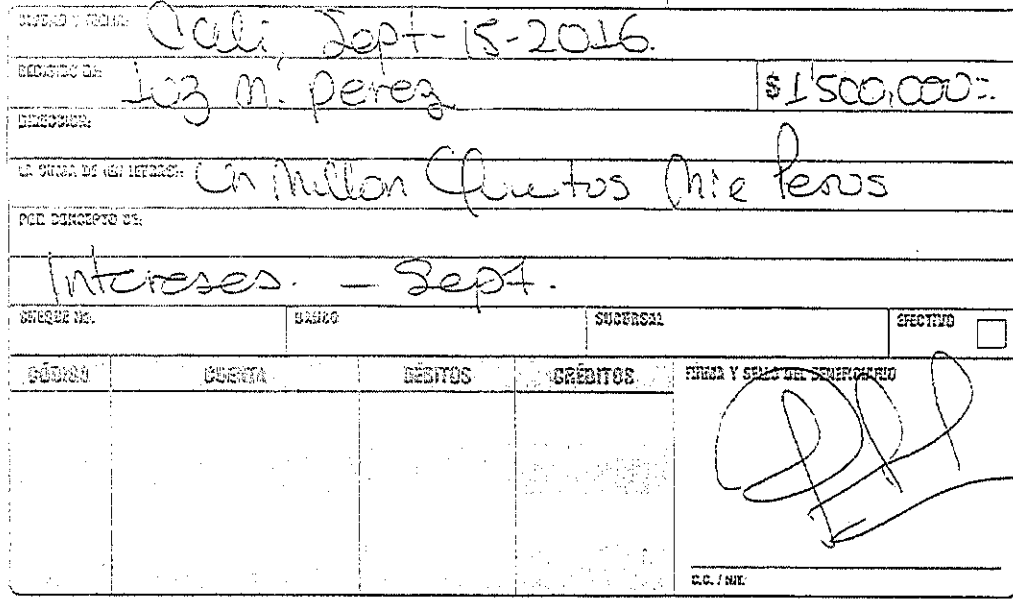 CIUDAD Y FECHA: Cali, Sept-15-2016.
RECIBIDO DE: Luz M. Perez $1'500,000=
DIRECCION:
LA SUMA DE (EN LETRAS): Un Millon Quientos Mil Pesos
POR CONCEPTO DE:
Intereses. - Sept.
CHEQUE No. BANCO SUCURSAL EFECTIVO
CÓDIGO CUENTA DÉBITOS CRÉDITOS FIRMA Y SELLO DEL BENEFICIARIO
C.C. / NIT.